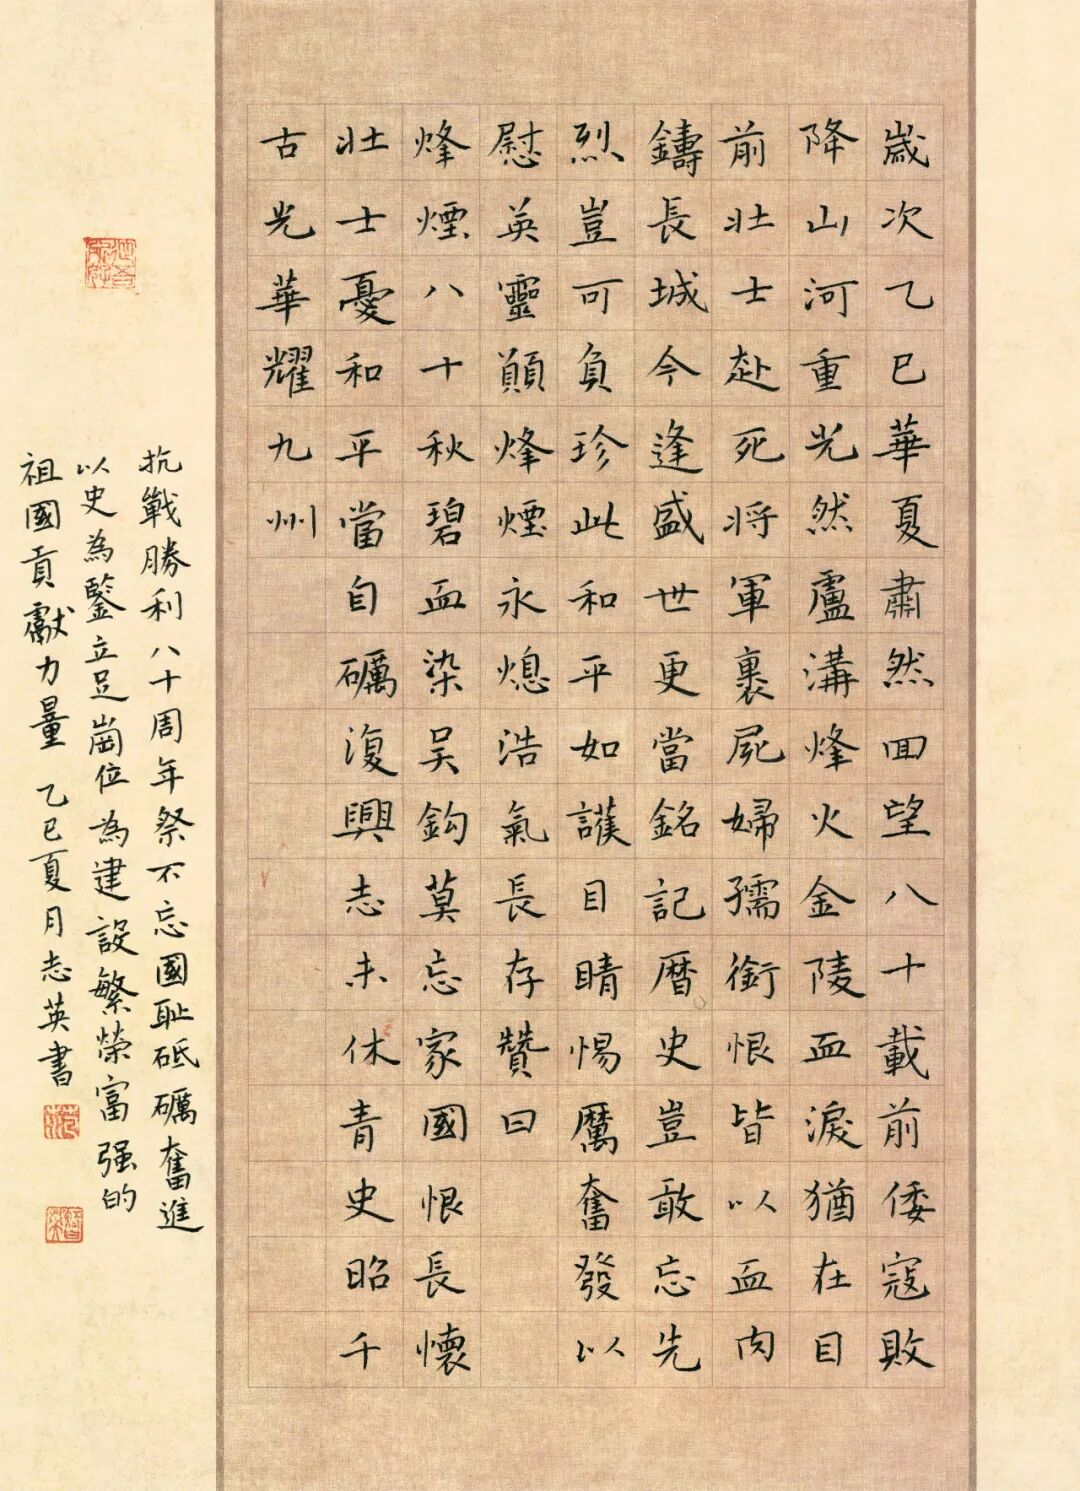 歲次乙巳華夏肅然回望八十載前倭寇敗
降山河重光然盧溝烽火金陵血淚猶在目
前壯士赴死將軍裹屍婦孺銜恨皆以血肉
鑄長城今逢盛世更當銘記曆史豈敢忘先
烈豈可負珍此和平如護目睛惕厲奮發以
慰英靈願烽煙永熄浩氣長存贊曰
烽煙八十秋碧血染吴鈎莫忘家國恨長懷
壯士憂和平當自礪復興志未休青史昭千
古光華耀九州
抗戰勝利八十周年祭不忘國耻砥礪奮進
以史為鑒立足崗位為建設繁榮富强的
祖國貢獻力量 乙巳夏月志英書